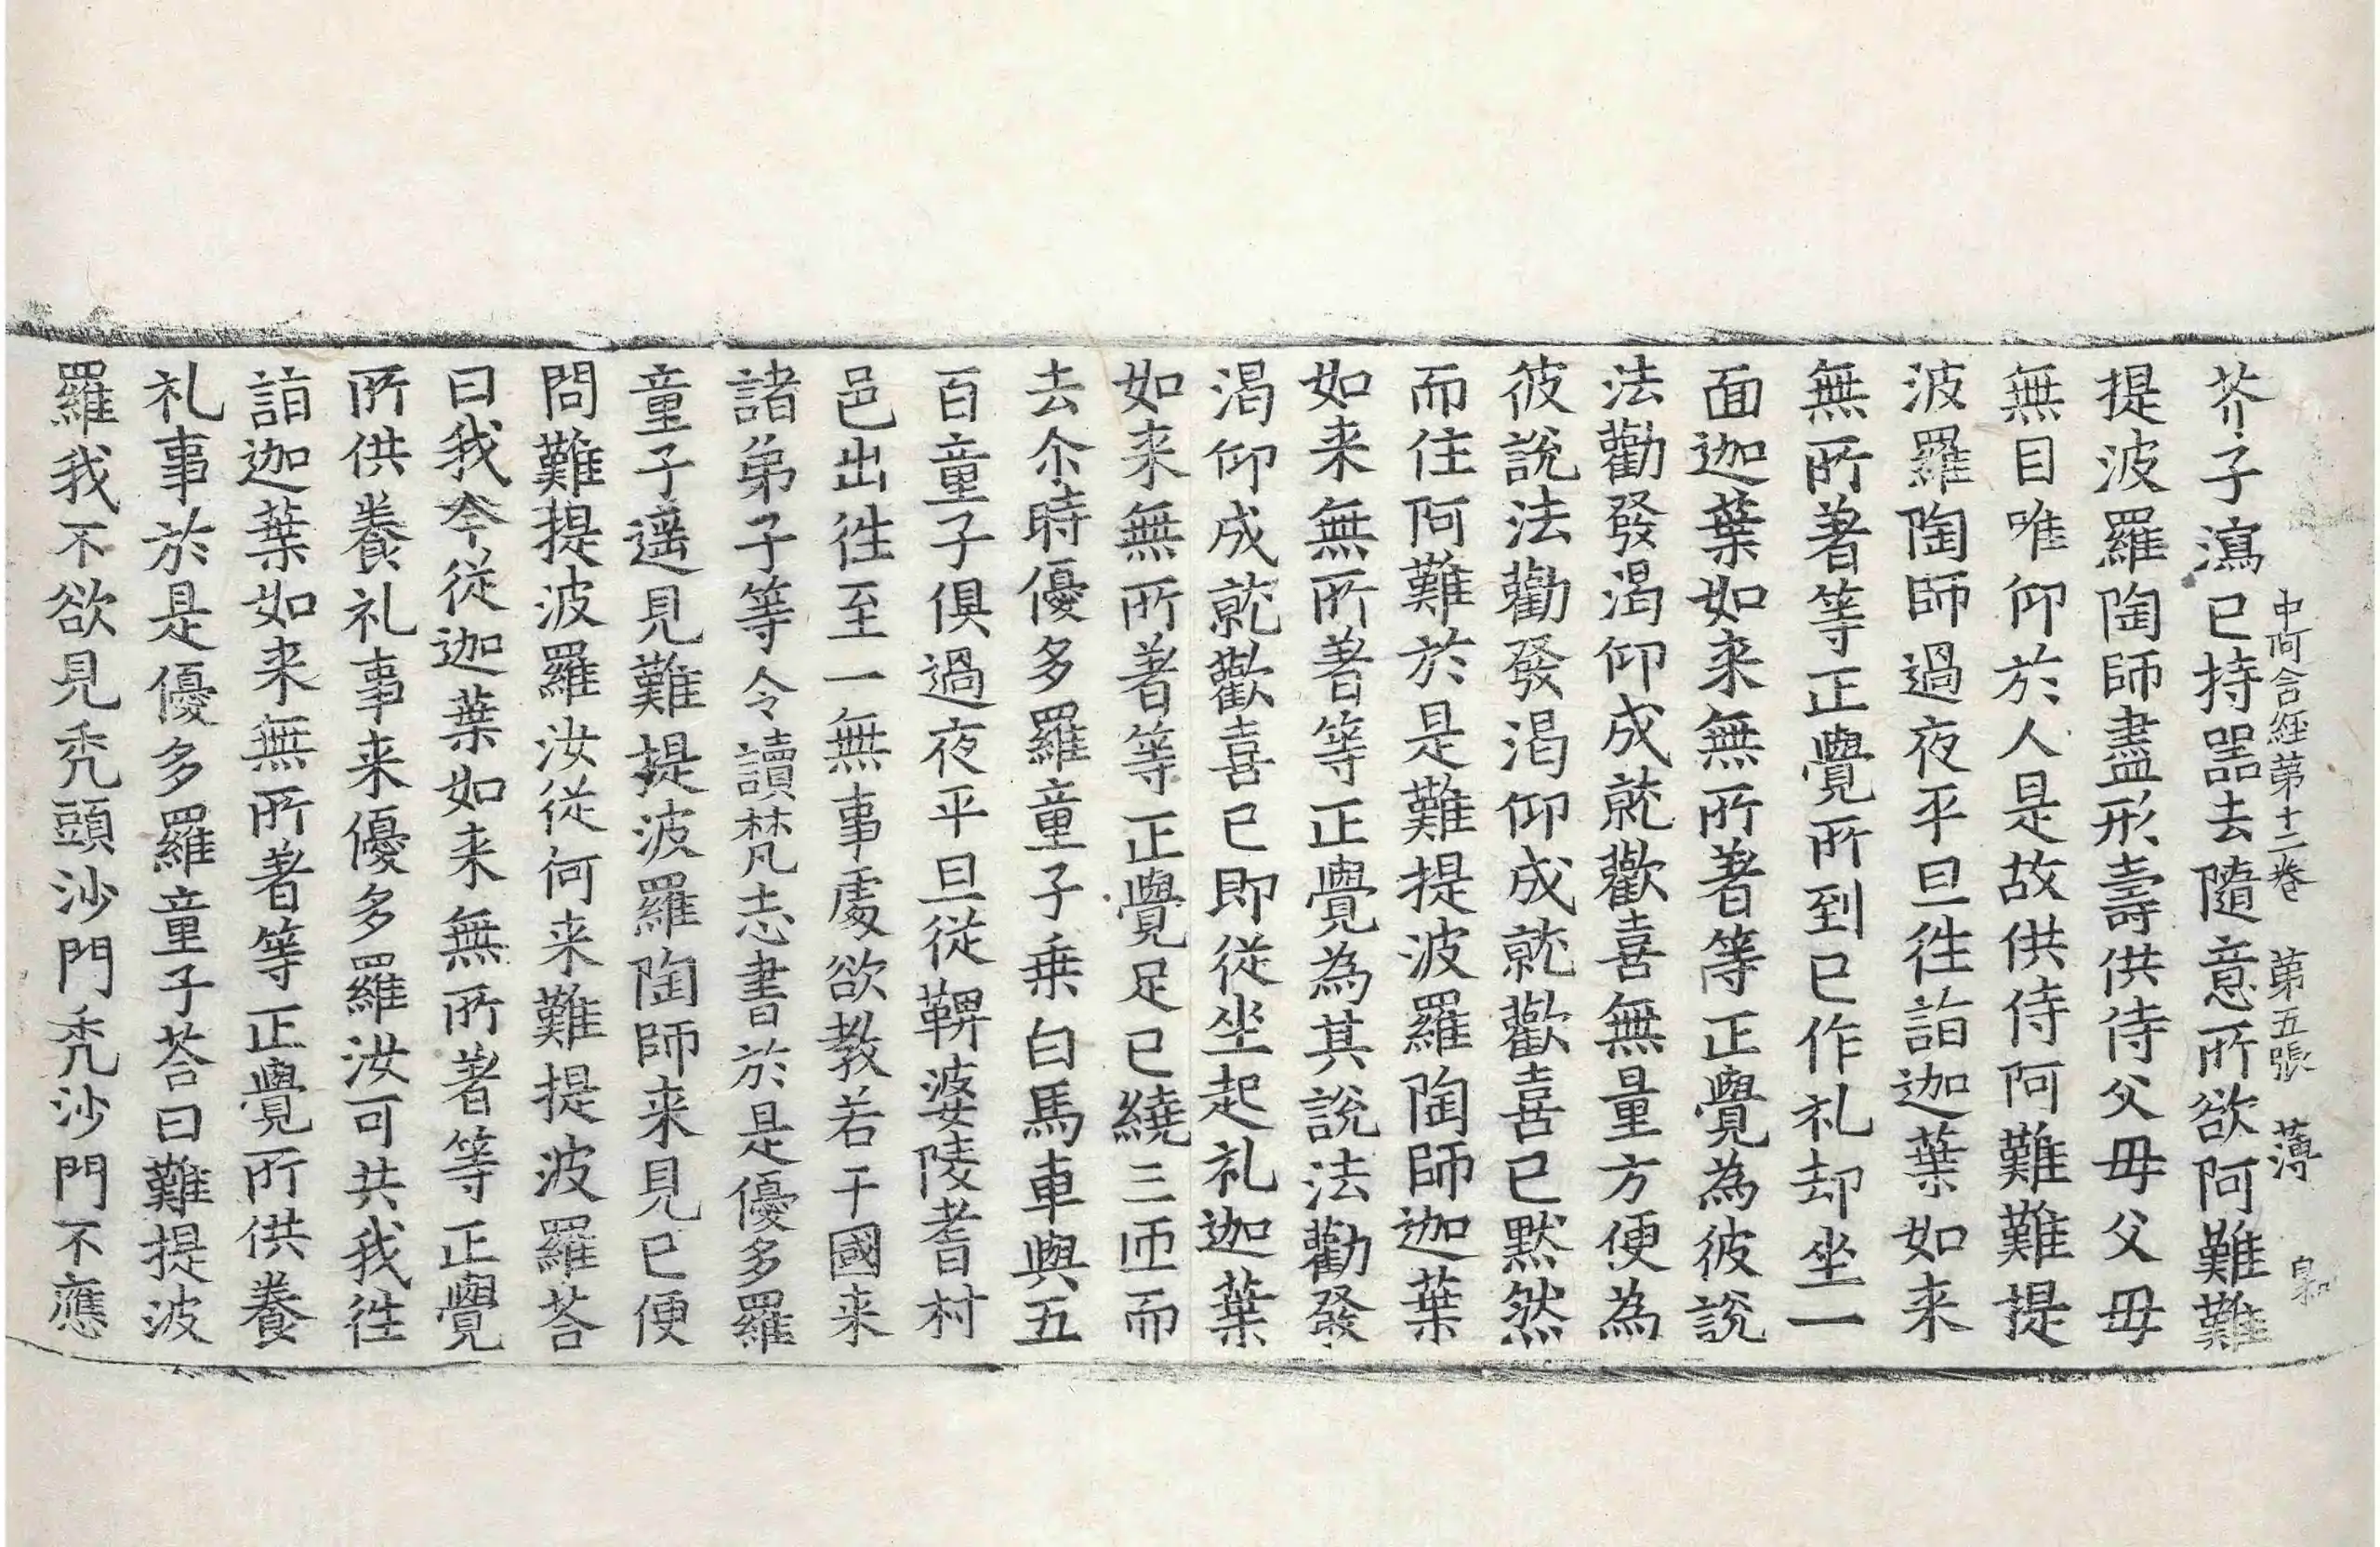 中阿含經第十二卷　第五張　薄　自和
芥子瀉已持器去隨意所欲阿難難
提波羅陶師盡形壽供侍父母父母
無目唯仰於人是故供侍阿難難提
波羅陶師過夜平旦徃詣迦葉如来
無所著等正覺所到已作礼却坐一
面迦葉如来無所著等正覺為彼說
法勸發渴仰成就歡喜無量方便為
彼說法勸發渴仰成就歡喜已默然
而住阿難於是難提波羅陶師迦葉
如来無所著等正覺為其說法勸發
渴仰成就歡喜已即從坐起礼迦葉
如来無所著等正覺足已繞三匝而
去尒時優多羅童子乗白馬車與五
百童子俱過夜平旦從鞞婆陵耆村
邑出徃至一無事處欲教若干國来
諸弟子等令讀梵志書於是優多羅
童子遥見難提波羅陶師来見已便
問難提波羅汝從何来難提波羅荅
曰我今從迦葉如来無所著等正覺
所供養礼事来優多羅汝可共我徃
詣迦葉如来無所著等正覺所供養
礼事於是優多羅童子荅曰難提波
羅我不欲見禿頭沙門禿沙門不應